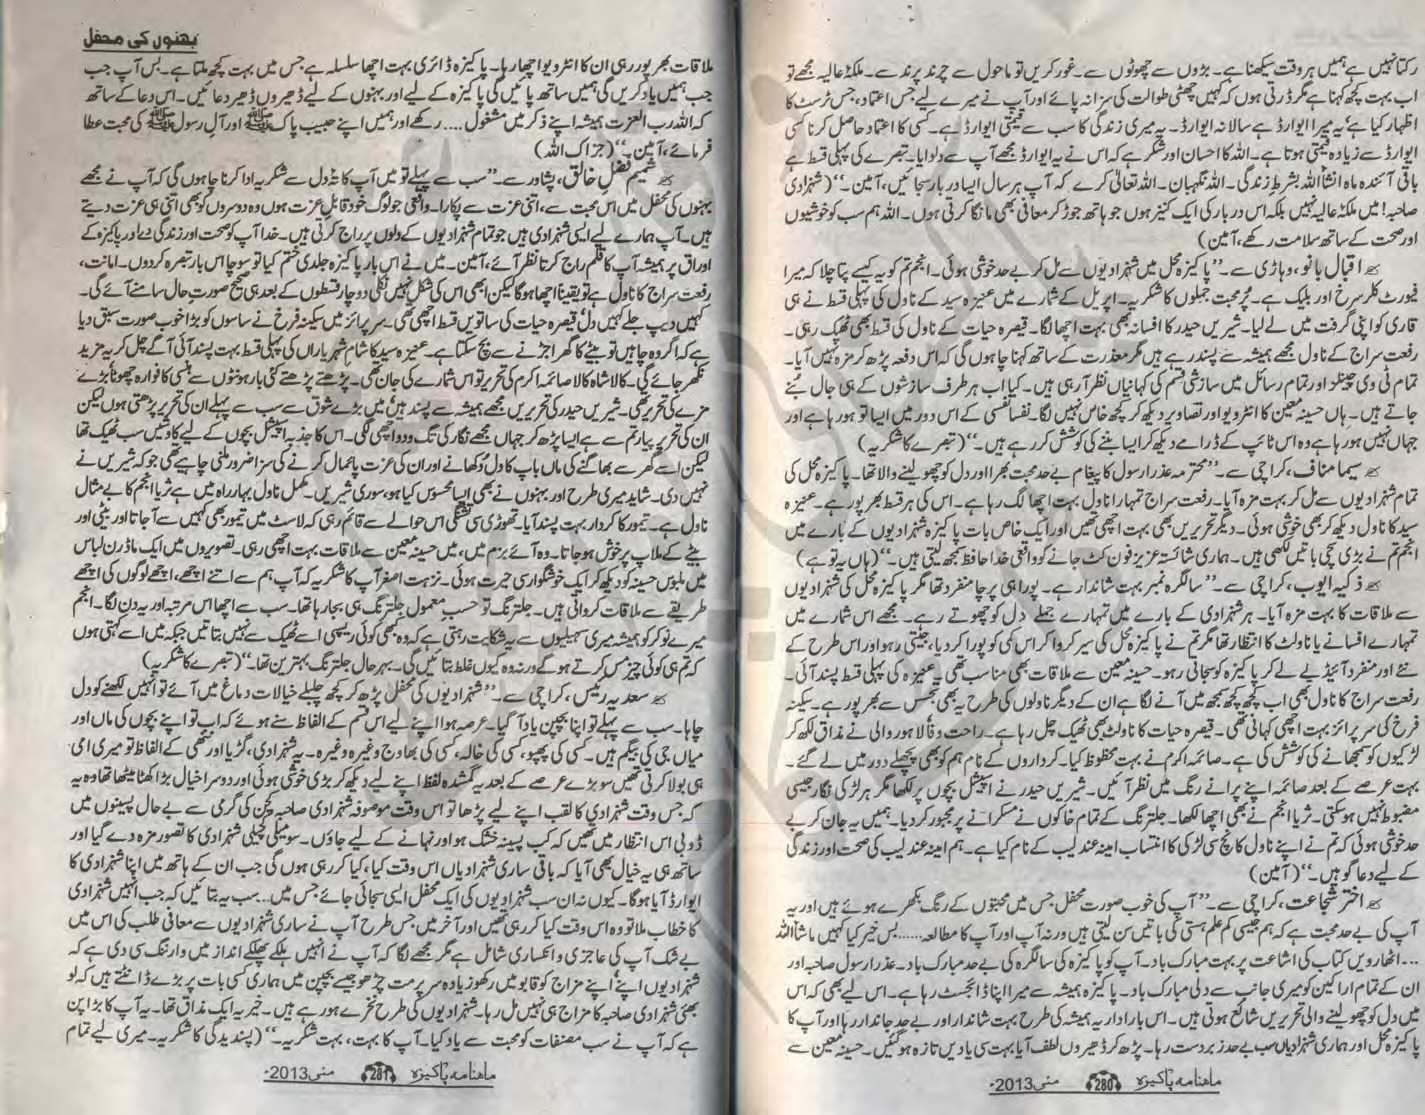 رکتا نہیں ہے ہمیں ہر وقت سیکھنا ہے۔ بڑوں سے چھوٹوں سے۔ غور کریں تو ماحول سے چرند پرند سے۔ ملکۂ عالیہ مجھے تو
اب بہت کچھ کہنا ہے مگر ڈرتی ہوں کہ کہیں چھٹی طوالت کی سزا نہ پائے اور آپ نے میرے لیے جس اعتماد، جس ٹرسٹ کا
اظہار کیا ہے یہ میرا ایوارڈ ہے سالانہ ایوارڈ۔ یہ میری زندگی کا سب سے قیمتی ایوارڈ ہے۔ کسی کا اعتماد حاصل کرنا کسی
ایوارڈ سے زیادہ قیمتی ہوتا ہے۔ اللہ کا احسان اور شکر ہے کہ اس نے یہ ایوارڈ مجھے آپ سے دلوایا۔ تبصرے کی پہلی قسط ہے
باقی آئندہ ماہ انشاللہ بشرطِ زندگی۔ اللہ نگہبان۔ اللہ تعالیٰ کرے کہ آپ ہر سال ایسا دربار سجائیں، آمین۔“ (شہزادی
صاحبہ! میں ملکۂ عالیہ نہیں بلکہ اس دربار کی ایک کنیز ہوں جو ہاتھ جوڑ کر معافی بھی مانگا کرتی ہوں۔ اللہ ہم سب کو خوشیوں
اور صحت کے ساتھ سلامت رکھے، آمین)
اقبال بانو، وہاڑی سے۔ ”پاکیزہ محل میں شہزادیوں سے مل کر بے حد خوشی ہوئی۔ انجم تم کو یہ کیسے پتا چلا کہ میرا
فیورٹ کلر سرخ اور بلیک ہے۔ پُر محبت جملوں کا شکریہ۔ اپریل کے شمارے میں عنیزہ سید کے ناول کی پہلی قسط نے ہی
قاری کو اپنی گرفت میں لے لیا۔ شیریں حیدر کا افسانہ بھی بہت اچھا لگا۔ قیصرہ حیات کے ناول کی قسط بھی ٹھیک رہی۔
رفعت سراج کے ناول مجھے ہمیشہ سے پسند رہے ہیں مگر معذرت کے ساتھ کہنا چاہوں گی کہ اس دفعہ پڑھ کر مزہ نہیں آیا۔
تمام ٹی وی چینلز اور تمام رسائل میں سازشی قسم کی کہانیاں نظر آ رہی ہیں۔ کیا اب ہر طرف سازشوں کے ہی جال بُنے
جاتے ہیں۔ ہاں حسینہ معین کا انٹرویو اور تصاویر دیکھ کر کچھ خاص نہیں لگا۔ نفسانفسی کے اس دور میں ایسا تو ہو رہا ہے اور
جہاں نہیں ہو رہا ہے وہ اس ٹائپ کے ڈرامے دیکھ کر ایسا بننے کی کوشش کر رہے ہیں۔“ (تبصرے کا شکریہ)
سیما مناف، کراچی سے۔ ”محترمہ عذرا رسول کا پیغام بے حد محبت بھرا اور دل کو چھو لینے والا تھا۔ پاکیزہ محل کی
تمام شہزادیوں سے مل کر بہت مزہ آیا۔ رفعت سراج تمہارا ناول بہت اچھا لگ رہا ہے۔ اس کی ہر قسط بھرپور ہے۔ عنیزہ
سید کا ناول دیکھ کر بھی خوشی ہوئی۔ دیگر تحریریں بھی بہت اچھی تھیں اور ایک خاص بات پاکیزہ شہزادیوں کے بارے میں
انجم تم نے بڑی سچی باتیں لکھی ہیں۔ ہماری شائستہ عزیز فون کٹ جانے کو واقعی خدا حافظ سمجھ لیتی ہیں۔“ (ہاں یہ تو ہے)
ذکیہ ایوب، کراچی سے۔ ”سالگرہ نمبر بہت شاندار ہے۔ پورا ہی پرچا منفرد تھا مگر پاکیزہ محل کی شہزادیوں
سے ملاقات کا بہت مزہ آیا۔ ہر شہزادی کے بارے میں تمہارے جملے دل کو چھوتے رہے۔ مجھے اس شمارے میں
تمہارے افسانے یا ناولٹ کا انتظار تھا مگر تم نے پاکیزہ محل کی سیر کروا کر اس کمی کو پورا کر دیا، جیتی رہو اور اس طرح کے
نئے اور منفرد آئیڈیے لے کر پاکیزہ کو سجاتی رہو۔ حسینہ معین سے ملاقات بھی مناسب تھی۔ عنیزہ کی پہلی قسط پسند آئی۔
رفعت سراج کا ناول بھی اب کچھ کچھ سمجھ میں آنے لگا ہے ان کے دیگر ناولوں کی طرح یہ بھی تجسس سے بھرپور ہے۔ سکینہ
فرخ کی سرپرائز بہت اچھی کہانی تھی۔ قیصرہ حیات کا ناولٹ بھی ٹھیک چل رہا ہے۔ راحت وفا لاہور والی نے مذاق لکھ کر
لڑکیوں کو سمجھانے کی کوشش کی ہے۔ صائمہ اکرم نے بہت محظوظ کیا۔ کرداروں کے نام ہم کو بھی پچھلے دور میں لے گئے۔
بہت عرصے کے بعد صائمہ اپنے پرانے رنگ میں نظر آئیں۔ شیریں حیدر نے اسپیشل بچوں پر لکھا مگر ہر لڑکی نگار جیسی
مضبوط نہیں ہو سکتی۔ ثریا انجم نے بھی اچھا لکھا۔ جلترنگ کے تمام خاکوں نے مسکرانے پر مجبور کر دیا۔ ہمیں یہ جان کر بے
حد خوشی ہوئی کہ تم نے اپنے ناول کانچ سی لڑکی کا انتساب امینہ عندلیب کے نام کیا ہے۔ ہم امینہ عندلیب کی صحت اور زندگی
کے لیے دعا گو ہیں۔“ (آمین)
اختر شجاعت، کراچی سے۔ ”آپ کی خوب صورت محفل جس میں محبتوں کے رنگ بکھرے ہوئے ہیں اور یہ
آپ کی بے حد محبت ہے کہ ہم جیسی کم علم ہستی کی باتیں سن لیتی ہیں ورنہ آپ اور آپ کا مطالعہ...... بس خیر کیا کہیں ماشاللہ
... اٹھارویں کتاب کی اشاعت پر بہت مبارک باد۔ آپ کو پاکیزہ کی سالگرہ کی بے حد مبارک باد۔ عذرا رسول صاحبہ اور
ان کے تمام اراکین کو میری جانب سے دلی مبارک باد۔ پاکیزہ ہمیشہ سے میرا اپنا ڈائجسٹ رہا ہے۔ اس لیے بھی کہ اس
میں دل کو چھو لینے والی تحریریں شائع ہوتی ہیں۔ اس بار اداریہ ہمیشہ کی طرح بہت شاندار اور بے حد جاندار رہا اور آپ کا
پاکیزہ محل اور ہماری شہزادیاں سب بے حد زبردست رہا۔ پڑھ کر ڈھیروں لطف آیا بہت سی یادیں تازہ ہو گئیں۔ حسینہ معین سے
ماہنامہ پاکیزہ 280 مئی 2013ء
بہنوں کی محفل
ملاقات بھرپور رہی ان کا انٹرویو اچھا رہا۔ پاکیزہ ڈائری بہت اچھا سلسلہ ہے جس میں بہت کچھ ملتا ہے۔ بس آپ جب
جب ہمیں یاد کریں گی ہمیں ساتھ پائیں گی پاکیزہ کے لیے اور بہنوں کے لیے ڈھیروں ڈھیر دعائیں۔ اس دعا کے ساتھ
کہ اللہ رب العزت ہمیشہ اپنے ذکر میں مشغول .... رکھے اور ہمیں اپنے حبیب پاک ﷺ اور آلِ رسول ﷺ کی محبت عطا
فرمائے، آمین۔“ (جزاک اللہ)
شمیم فضل خالق، پشاور سے۔ ”سب سے پہلے تو میں آپ کا تہِ دل سے شکریہ ادا کرنا چاہوں گی کہ آپ نے مجھے
بہنوں کی محفل میں اس محبت سے، اتنی عزت سے پکارا۔ واقعی جو لوگ خود قابلِ عزت ہوں وہ دوسروں کو بھی اتنی ہی عزت دیتے
ہیں۔ آپ ہمارے لیے ایسی شہزادی ہیں جو تمام شہزادیوں کے دلوں پر راج کرتی ہیں۔ خدا آپ کو صحت اور زندگی دے اور پاکیزہ کے
اوراق پر ہمیشہ آپ کا قلم راج کرتا نظر آئے، آمین۔ میں نے اس بار پاکیزہ جلدی ختم کیا تو سوچا اس بار تبصرہ کر دوں۔ امانت،
رفعت سراج کا ناول ہے تو یقیناً اچھا ہوگا لیکن ابھی اس کی شکل نہیں نکلی دو چار قسطوں کے بعد ہی صحیح صورتِ حال سامنے آئے گی۔
کہیں دیپ جلے کہیں دل، قیصرہ حیات کی ساتویں قسط اچھی تھی۔ سرپرائز میں سکینہ فرخ نے ساسوں کو بڑا خوب صورت سبق دیا
ہے کہ اگر وہ چاہیں تو بیٹے کا گھر اجڑنے سے بچ سکتا ہے۔ عنیزہ سید کا شام شہر یاراں کی پہلی قسط بہت پسند آئی آگے چل کر یہ مزید
نکھر جائے گی۔ کالا شاہ کالا صائمہ اکرم کی تحریر تو اس شمارے کی جان تھی۔ پڑھتے پڑھتے کئی بار ہونٹوں سے ہنسی کا فوارہ چھوٹا بڑے
مزے کی تحریر تھی۔ شیریں حیدر کی تحریریں مجھے ہمیشہ سے پسند ہیں میں بڑے شوق سے سب سے پہلے ان کی تحریر پڑھتی ہوں لیکن
ان کی تحریر پیار تم سے ہے ایسا پڑھ کر جہاں مجھے نگار کی تگ و دو اچھی لگی۔ اس کا جذبہ اسپیشل بچوں کے لیے کاوشیں سب ٹھیک تھا
لیکن اسے گھر سے بھاگنے کی ماں باپ کا دل دُکھانے اور ان کی عزت پائمال کرنے کی سزا ضرور ملنی چاہیے تھی جو کہ شیریں نے
نہیں دی۔ شاید میری طرح اور بہنوں نے بھی ایسا محسوس کیا ہو، سوری شیریں۔ مکمل ناول بہار راہ میں ہے ثریا انجم کا بے مثال
ناول ہے۔ تیمور کا کردار بہت پسند آیا۔ تھوڑی سی تشنگی اس حوالے سے قائم رہی کہ لاسٹ میں تیمور بھی کہیں سے آ جاتا اور بیٹی اور
بیٹے کے ملاپ پر خوش ہو جاتا۔ وہ آئے بزم میں، میں حسینہ معین سے ملاقات بہت اچھی رہی۔ تصویروں میں ایک ماڈرن لباس
میں ملبوس حسینہ کو دیکھ کر ایک خوشگوار سی حیرت ہوئی۔ نزہت اصغر آپ کا شکریہ کہ آپ ہم سے اتنے اچھے، اچھے لوگوں کی اچھے
طریقے سے ملاقات کرواتی ہیں۔ جلترنگ تو حسبِ معمول جلترنگ ہی بجا رہا تھا۔ سب سے اچھا اس مرتبہ اور یہ دن لگا۔ انجم
میرے نوکر کو ہمیشہ میری سہیلیوں سے یہ شکایت رہتی ہے کہ وہ بھی کوئی ریسپی اسے ٹھیک سے نہیں بتاتیں جبکہ میں اسے کہتی ہوں
کہ تم ہی کوئی چیز مس کرتے ہو گے ورنہ وہ کیوں غلط بتائیں گی۔ بہرحال جلترنگ بہترین تھا۔“ (تبصرے کا شکریہ)
سعدیہ رئیس، کراچی سے۔ ”شہزادیوں کی محفل پڑھ کر کچھ چلبلے خیالات دماغ میں آئے تو انہیں لکھنے کو دل
چاہا۔ سب سے پہلے تو اپنا بچپن یاد آ گیا۔ عرصہ ہوا اپنے لیے اس قسم کے الفاظ سنے ہوئے کہ اب تو اپنے بچوں کی ماں اور
میاں جی کی بیگم ہیں۔ کسی کی پھپو، کسی کی خالہ، کسی کی بھاوج وغیرہ وغیرہ۔ یہ شہزادی، گڑیا اور ننھی کے الفاظ تو میری امی
ہی بولا کرتی تھیں سو بڑے عرصے کے بعد یہ گمشدہ لفظ اپنے لیے دیکھ کر بڑی خوشی ہوئی اور دوسرا خیال بڑا کھٹا میٹھا تھا وہ یہ
کہ جس وقت شہزادی کا لقب اپنے لیے پڑھا تو اس وقت موصوفہ شہزادی صاحبہ کچن کی گرمی سے بے حال پسینوں میں
ڈوبی اس انتظار میں تھیں کہ کب پسینہ خشک ہو اور نہانے کے لیے جاؤں۔ سو میلی کچیلی شہزادی کا تصور مزہ دے گیا اور
ساتھ ہی یہ خیال بھی آیا کہ باقی ساری شہزادیاں اس وقت کیا، کیا کر رہی ہوں گی جب ان کے ہاتھ میں اپنا شہزادی کا
ایوارڈ آیا ہوگا۔ کیوں نہ ان سب شہزادیوں کی ایک محفل ایسی سجائی جائے جس میں... سب یہ بتائیں کہ جب انہیں شہزادی
کا خطاب ملا تو وہ اس وقت کیا کر رہی تھیں اور آخر میں جس طرح آپ نے ساری شہزادیوں سے معافی طلب کی اس میں
بے شک آپ کی عاجزی و انکساری شامل ہے مگر مجھے لگا کہ آپ نے انہیں ہلکے پھلکے انداز میں وارننگ سی دی ہے کہ
شہزادیوں اپنے، اپنے مزاج کو قابو میں رکھو زیادہ سر پر مت چڑھو جیسے بچپن میں ہماری کسی بات پر بڑے ڈانٹتے ہیں کہ لو
بھئی شہزادی صاحبہ کا مزاج ہی نہیں مل رہا۔ شہزادیوں کی طرح نخرے ہو رہے ہیں۔ خیر یہ ایک مذاق تھا۔ یہ آپ کا بڑا پن
ہے کہ آپ نے سب مصنفات کو محبت سے یاد کیا۔ آپ کا بہت، بہت شکریہ۔“ (پسندیدگی کا شکریہ۔ میری لیے تمام
ماہنامہ پاکیزہ 281 مئی 2013ء